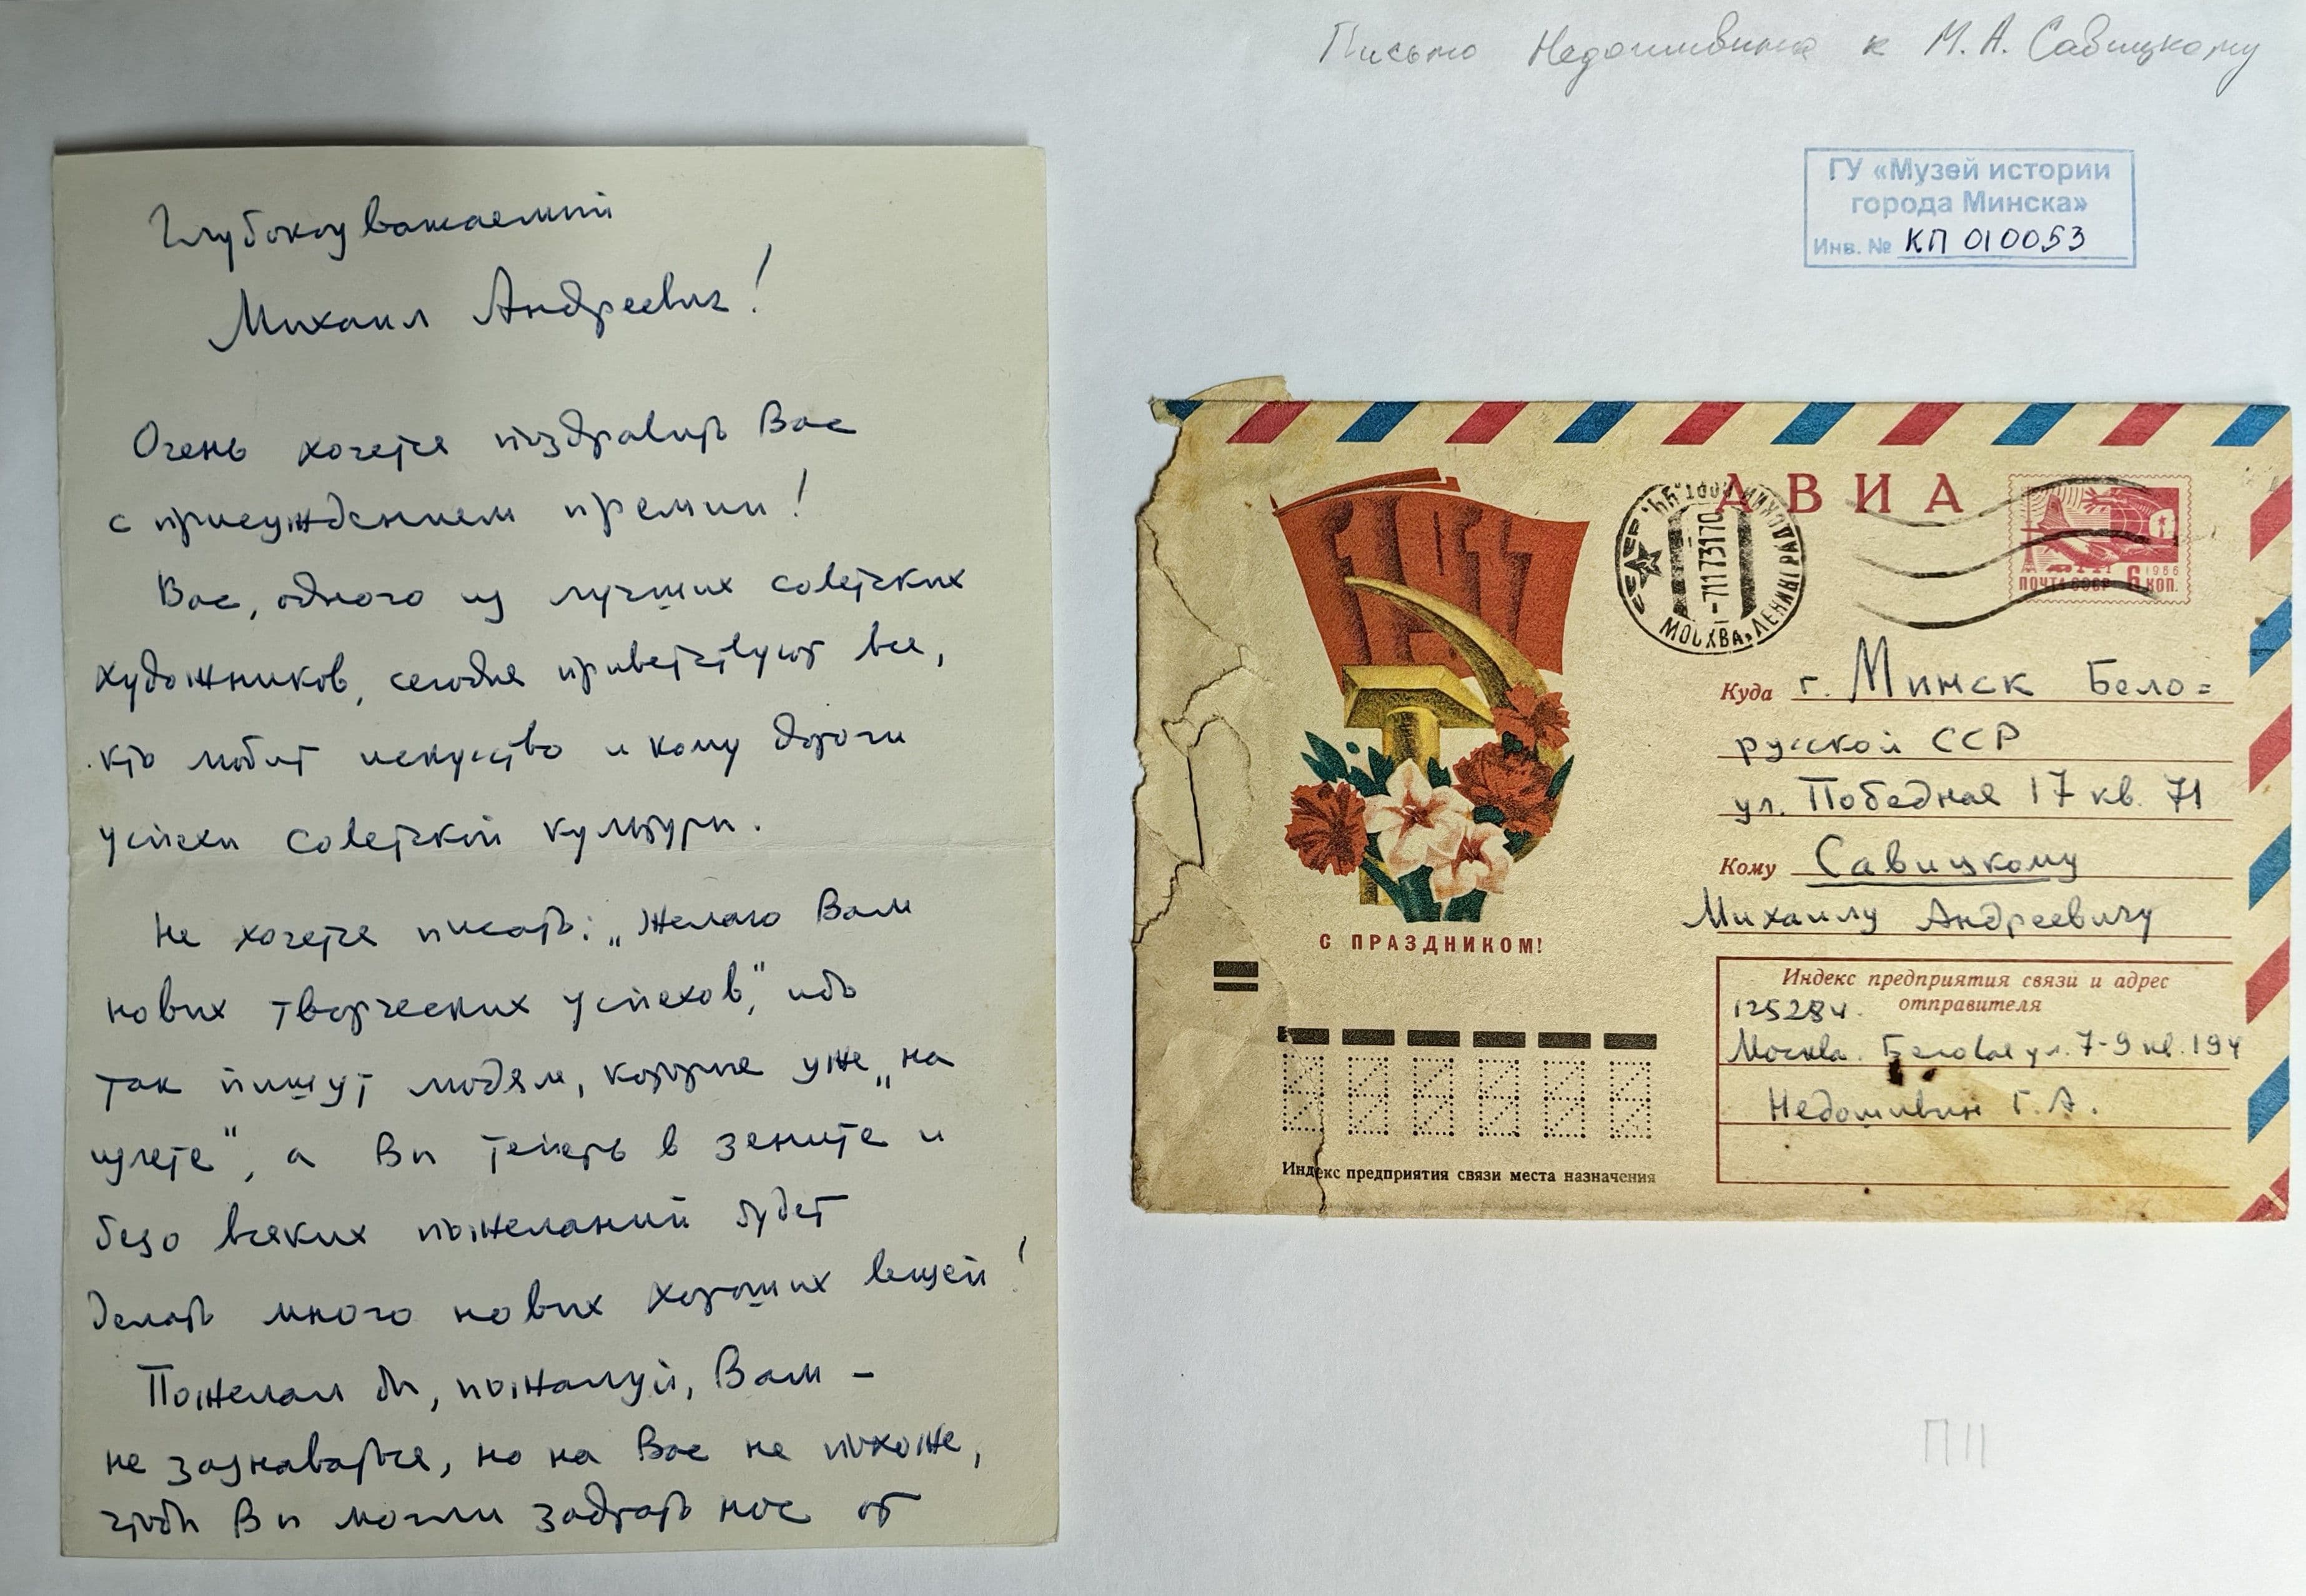 Письмо Недошивина к М. А. Савицкому
ГУ «Музей истории
города Минска»
Инв. № КП 010053
Глубокоуважаемый
Михаил Андреевич!
Очень хочется поздравить Вас
с присуждением премии!
Вас, одного из лучших советских
художников, сегодня приветствуют все,
кто любит искусство и кому дороги
успехи советской культуры.
Не хочется писать: „Желаю Вам
новых творческих успехов,” ибо
так пишут людям, которые уже „на
излете”, а Вы теперь в зените и
безо всяких пожеланий будет
делать много новых хороших вещей!
Пожелал бы, пожалуй, Вам –
не зазнаваться, но на Вас не похоже,
чтобы Вы могли задрать нос от
АВИА
1917
С ПРАЗДНИКОМ!
МОСКВА, ЛЕНИНГРАДСКИЙ
-71173170
ПОЧТА СССР 6 КОП.
1966
Куда г. Минск Бело=
русской ССР
ул. Победная 17 кв. 71
Кому Савицкому
Михаилу Андреевичу
Индекс предприятия связи и адрес
отправителя
125284.
Москва. Беговая ул. 7-9 кв. 194
Недошивин Г. А.
Индекс предприятия связи места назначения